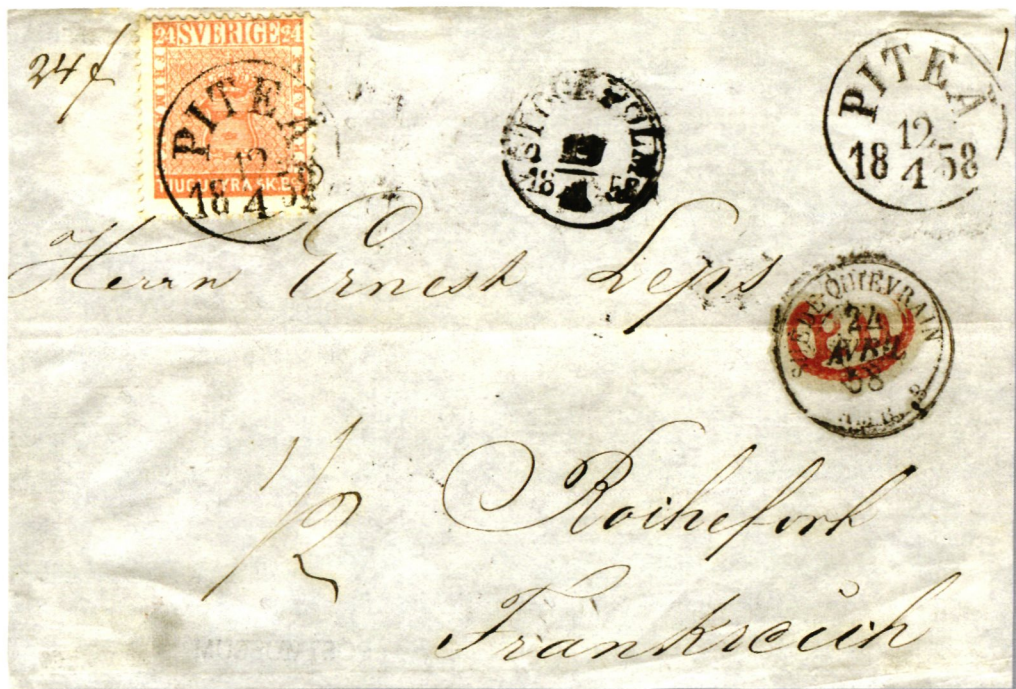 24 SVERIGE 24
24 f
TJUGUFYRA SK. BCO
PITEÅ
12
18 4 58
STOCKHOLM
18 58
PITEÅ
12
18 4 58
Herrn Ernest Leps
QUIEVRAIN
24
AVRIL
58
P.D.
1/2
Rochefort
Frankreich